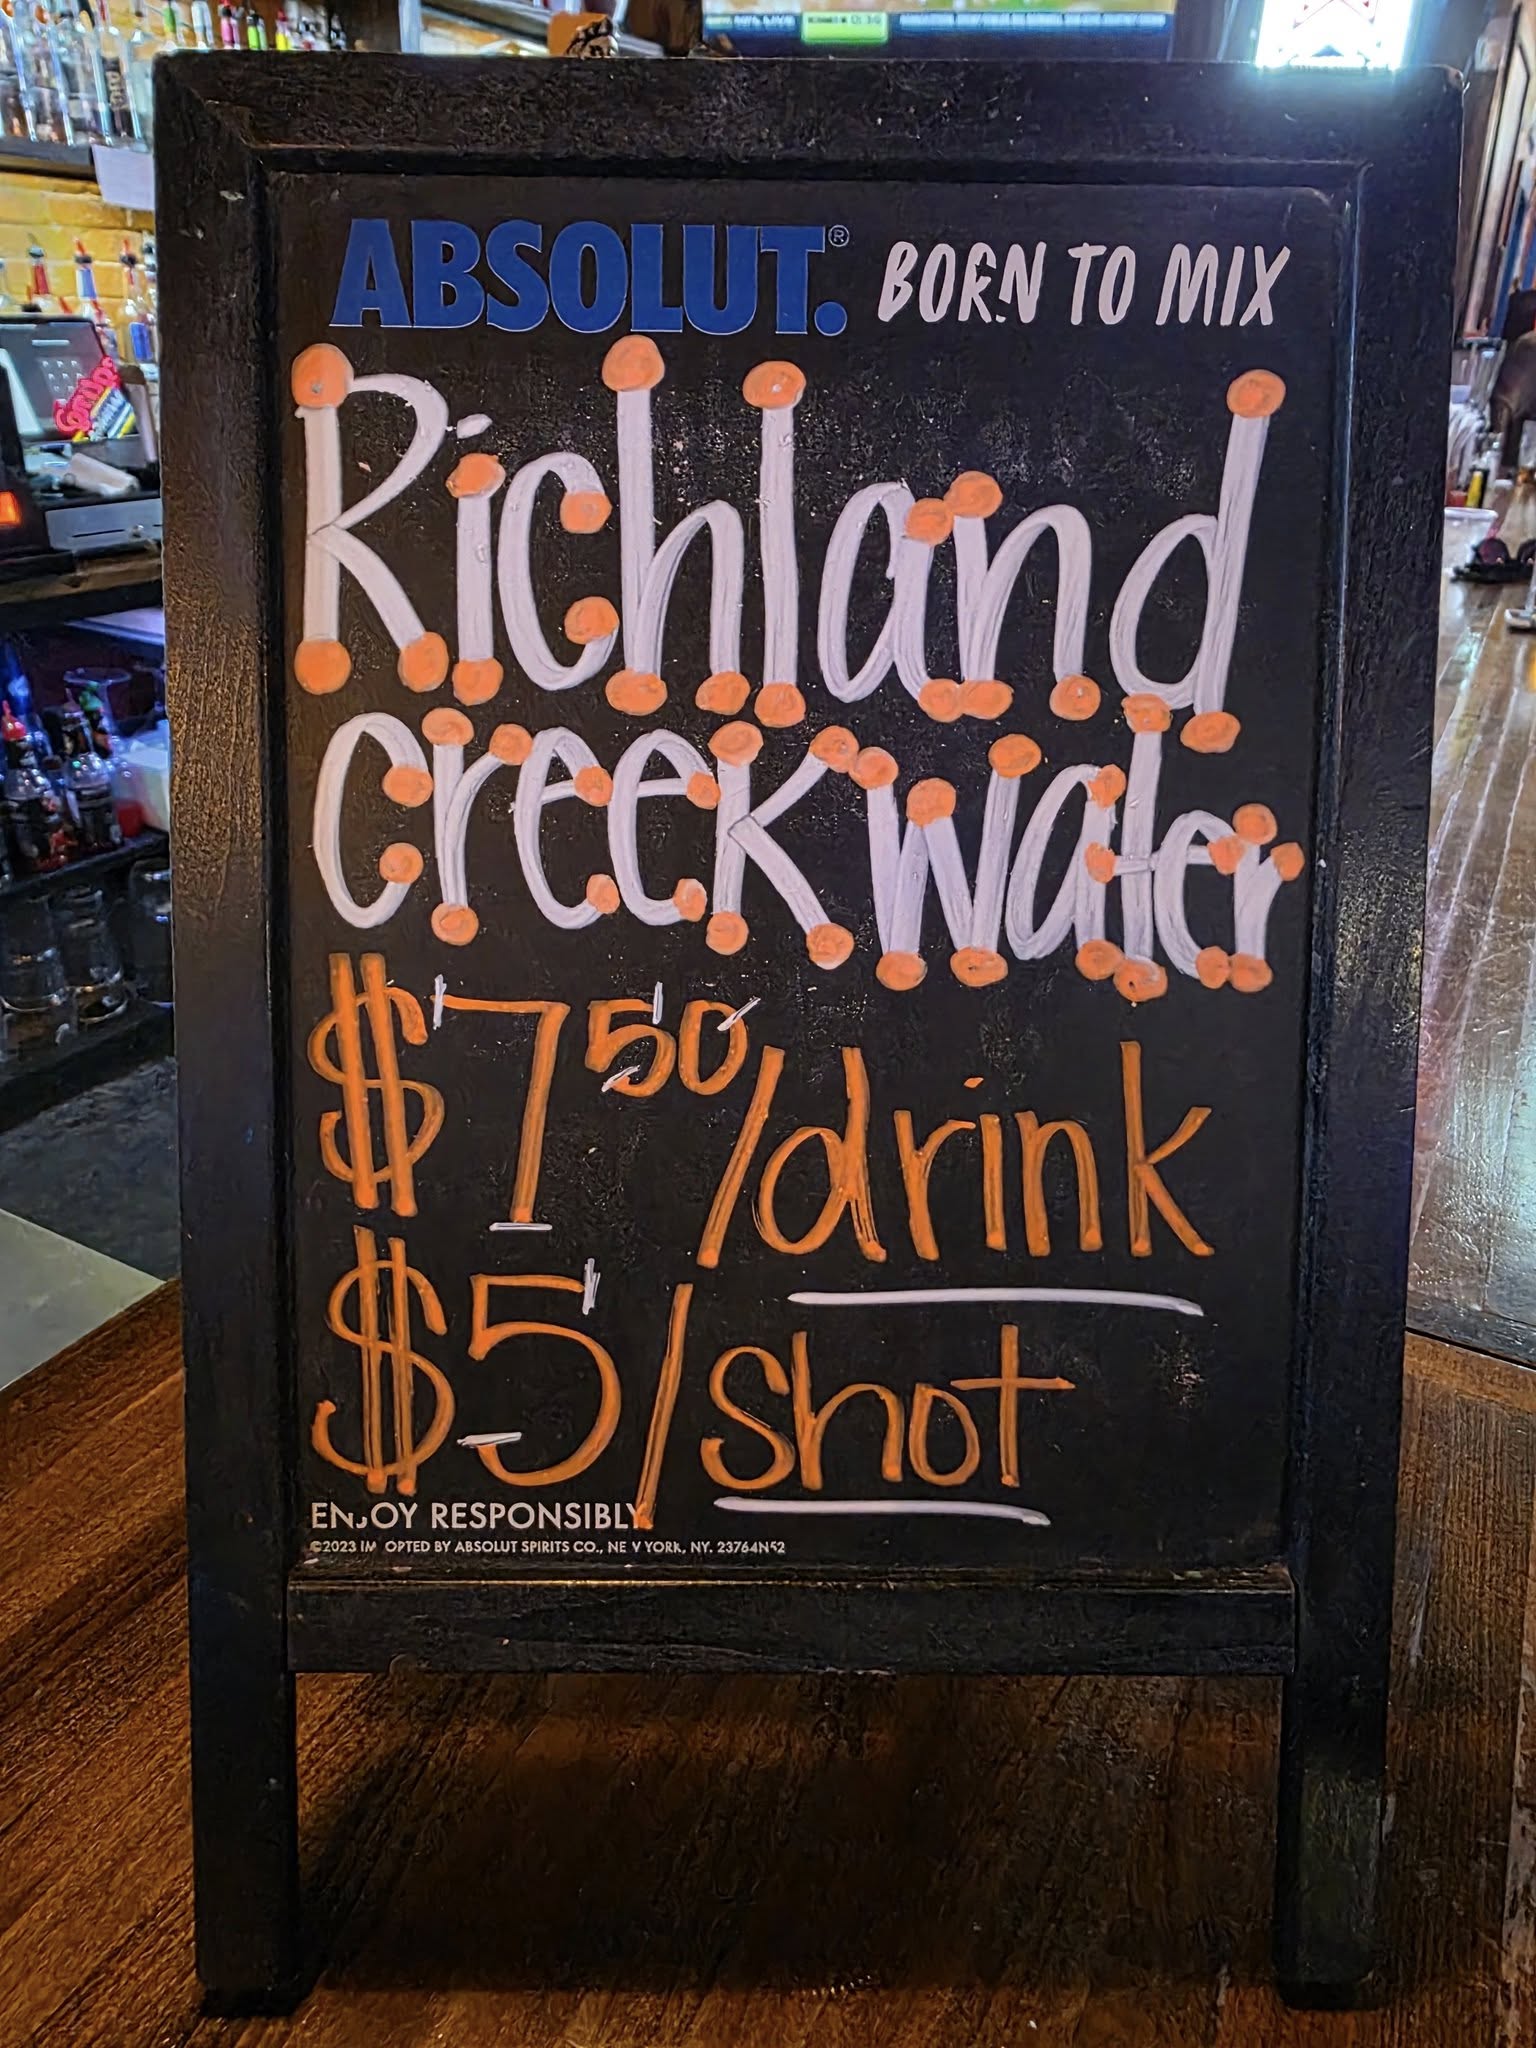 ABSOLUT.® BORN TO MIX
Richland
creekwater
$7 50/drink
$5/shot
ENJOY RESPONSIBLY.
©2023 IMPORTED BY ABSOLUT SPIRITS CO., NEW YORK, NY. 23764N52